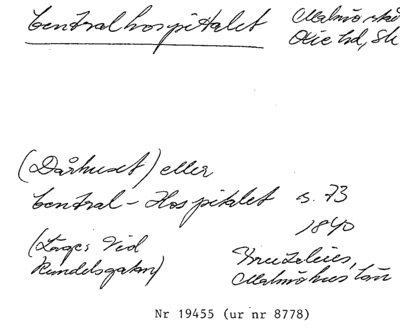 Centralhospitalet
Malmö skö
Oxie hd, Sk
(Dårhuset) eller
Central-Hospitalet s. 73
1840
(Läge: Vid
Rundelsgatan)
Malmöhus län
Nr 19455 (ur nr 8778)